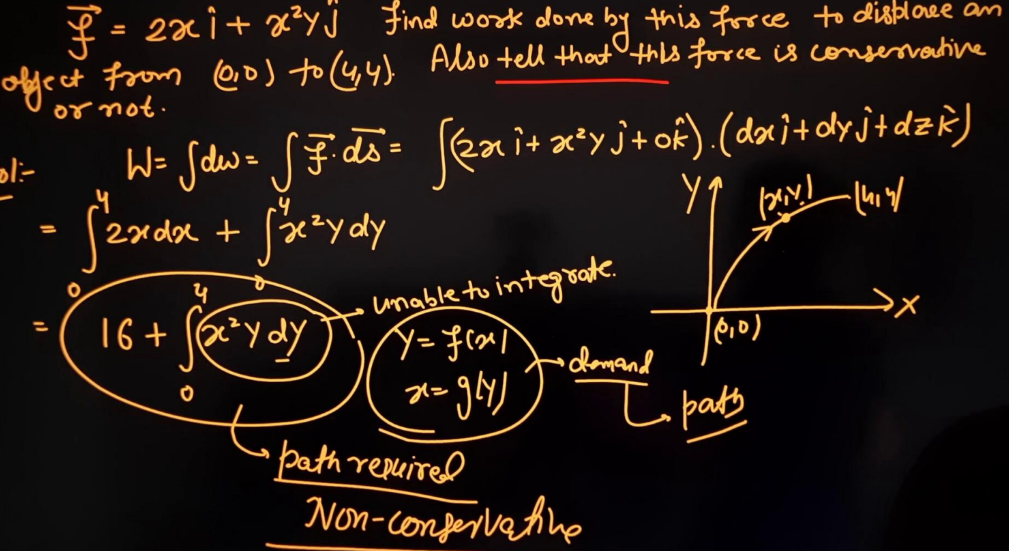 f⃗ = 2x î + x²y ĵ Find work done by this force to displace an
object from (0,0) to (4,4). Also tell that this force is conservative
or not.
ol:- W= ∫dw = ∫ f⃗. ds⃗ = ∫(2x î + x²y ĵ + 0k̂) . (dx î + dy ĵ + dz k̂)
= ∫₀⁴ 2x dx + ∫₀⁴ x²y dy
= 16 + ∫₀⁴ x²y dy
unable to integrate.
y = f(x)
x = g(y)
demand
path
path required
Non-conservative
Y
(x,y)
(4,4)
(0,0)
X